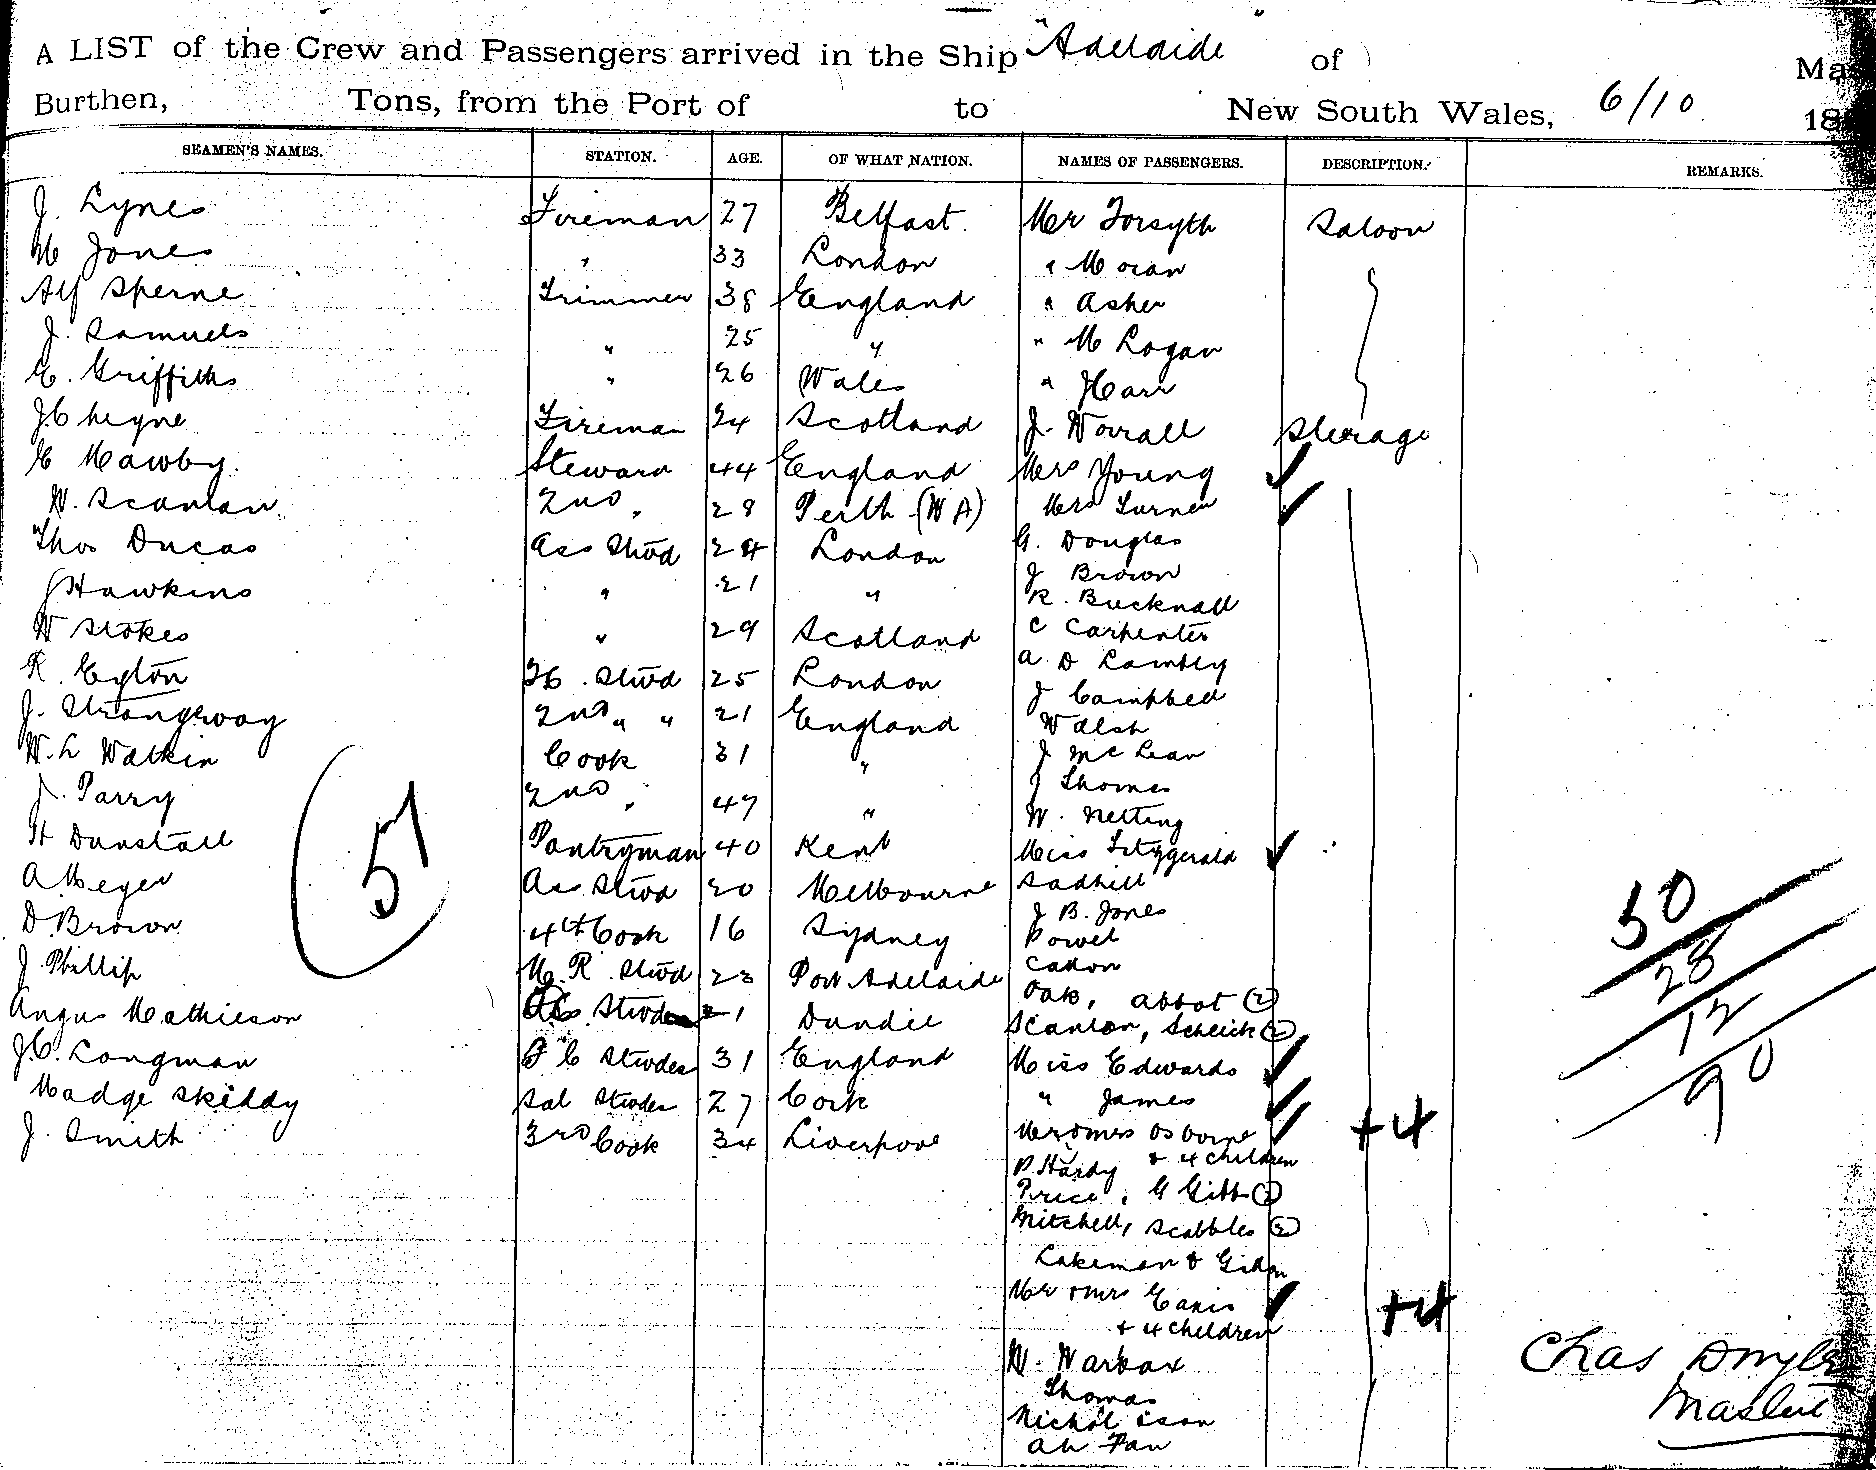 A LIST of the Crew and Passengers arrived in the Ship "Adelaide" of
Burthen, Tons, from the Port of to New South Wales, 6/10 18
SEAMEN'S NAMES. STATION. AGE. OF WHAT NATION. NAMES OF PASSENGERS. DESCRIPTION. REMARKS.
J. Lynes Fireman 27 Belfast Mr Forsyth Saloon
M Jones " 33 London " Moran
Alf Sperne Trimmer 38 England " Asher
J. Samuels " 25 " " M Logan
E. Griffiths " 26 Wales "
J Cheyne Fireman 24 Scotland J. Worrall Steerage
E Mawby. Steward 44 England Mrs Young
W. Scanlan 2nd " 28 Perth (WA) Mrs Turner
Thos Ducas Ass Stwd 24 London G. Douglas
J Hawkins " 21 " J Brown
R. Bucknall
W Stokes " 29 Scotland C Carpenter
A D Lambly
R. Eyton Stwd 25 London
J Campbell
J. Strangway 2nd " " 21 England Walsh
W. L Watkin Cook 31 " J McLean
J. Parry 2nd " 47 " J Thomas
W. Netting
H Dunstall Pantryman 40 Kent Miss Fitzgerald
A Meyer Ass Stwd 20 Melbourne Sadhill
J B. Jones
D. Brown 4th Cook 16 Sydney Powel
J. Phillip M. R. Stwd 23 Port Adelaide
Oak, Abbot (2)
Angus Mathieson Stwd 21 Dundee Scanlon, (2)
J.C. Longman F C Stwdes 31 England Miss Edwards
Madge Skiddy Sal Stwdes 27 Cork " James
J. Smith 3rd Cook 34 Liverpool Mr & Mrs Osborne +4
& 4 children
P Hardy
Price, G Gibb (2)
Mitchell, Scabbles (2)
Lakeman &
Mr & Mrs +4
+ 4 children
W.
Thomas
Nicholsson
Ah Pan
51
50
28
12
90
Chas
Master